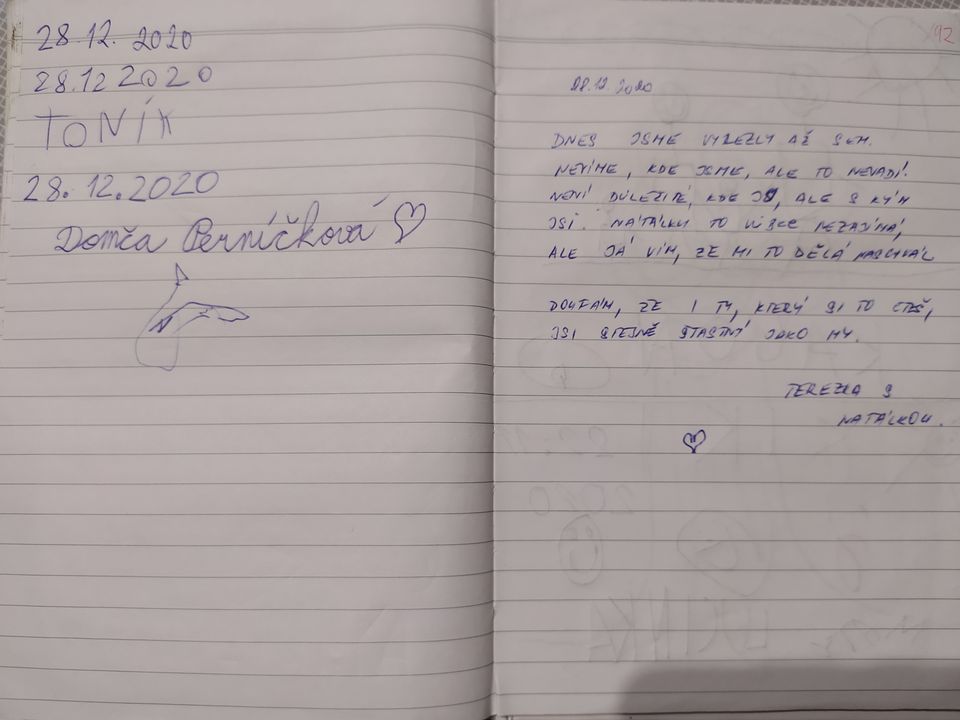 28.12. 2020
28.12 2020
TONÍK
28.12.2020
Domča Perníčková
92
28.12. 2020
DNES JSME VYLEZLY AŽ SEM.
NEVÍME, KDE JSME, ALE TO NEVADÍ.
NENÍ DŮLEŽITÉ, KDE JSI, ALE S KÝM
JSI. NATÁLKU TO VŮBEC NEZAJÍMÁ,
ALE JÁ VÍM, ŽE MI TO DĚLÁ NASCHVÁL
DOUFÁM, ŽE I TY, KTERÝ SI TO ČTEŠ,
JSI STEJNĚ ŠTASTNÝ JAKO MY.
TEREZKA S
NATÁLKOU.